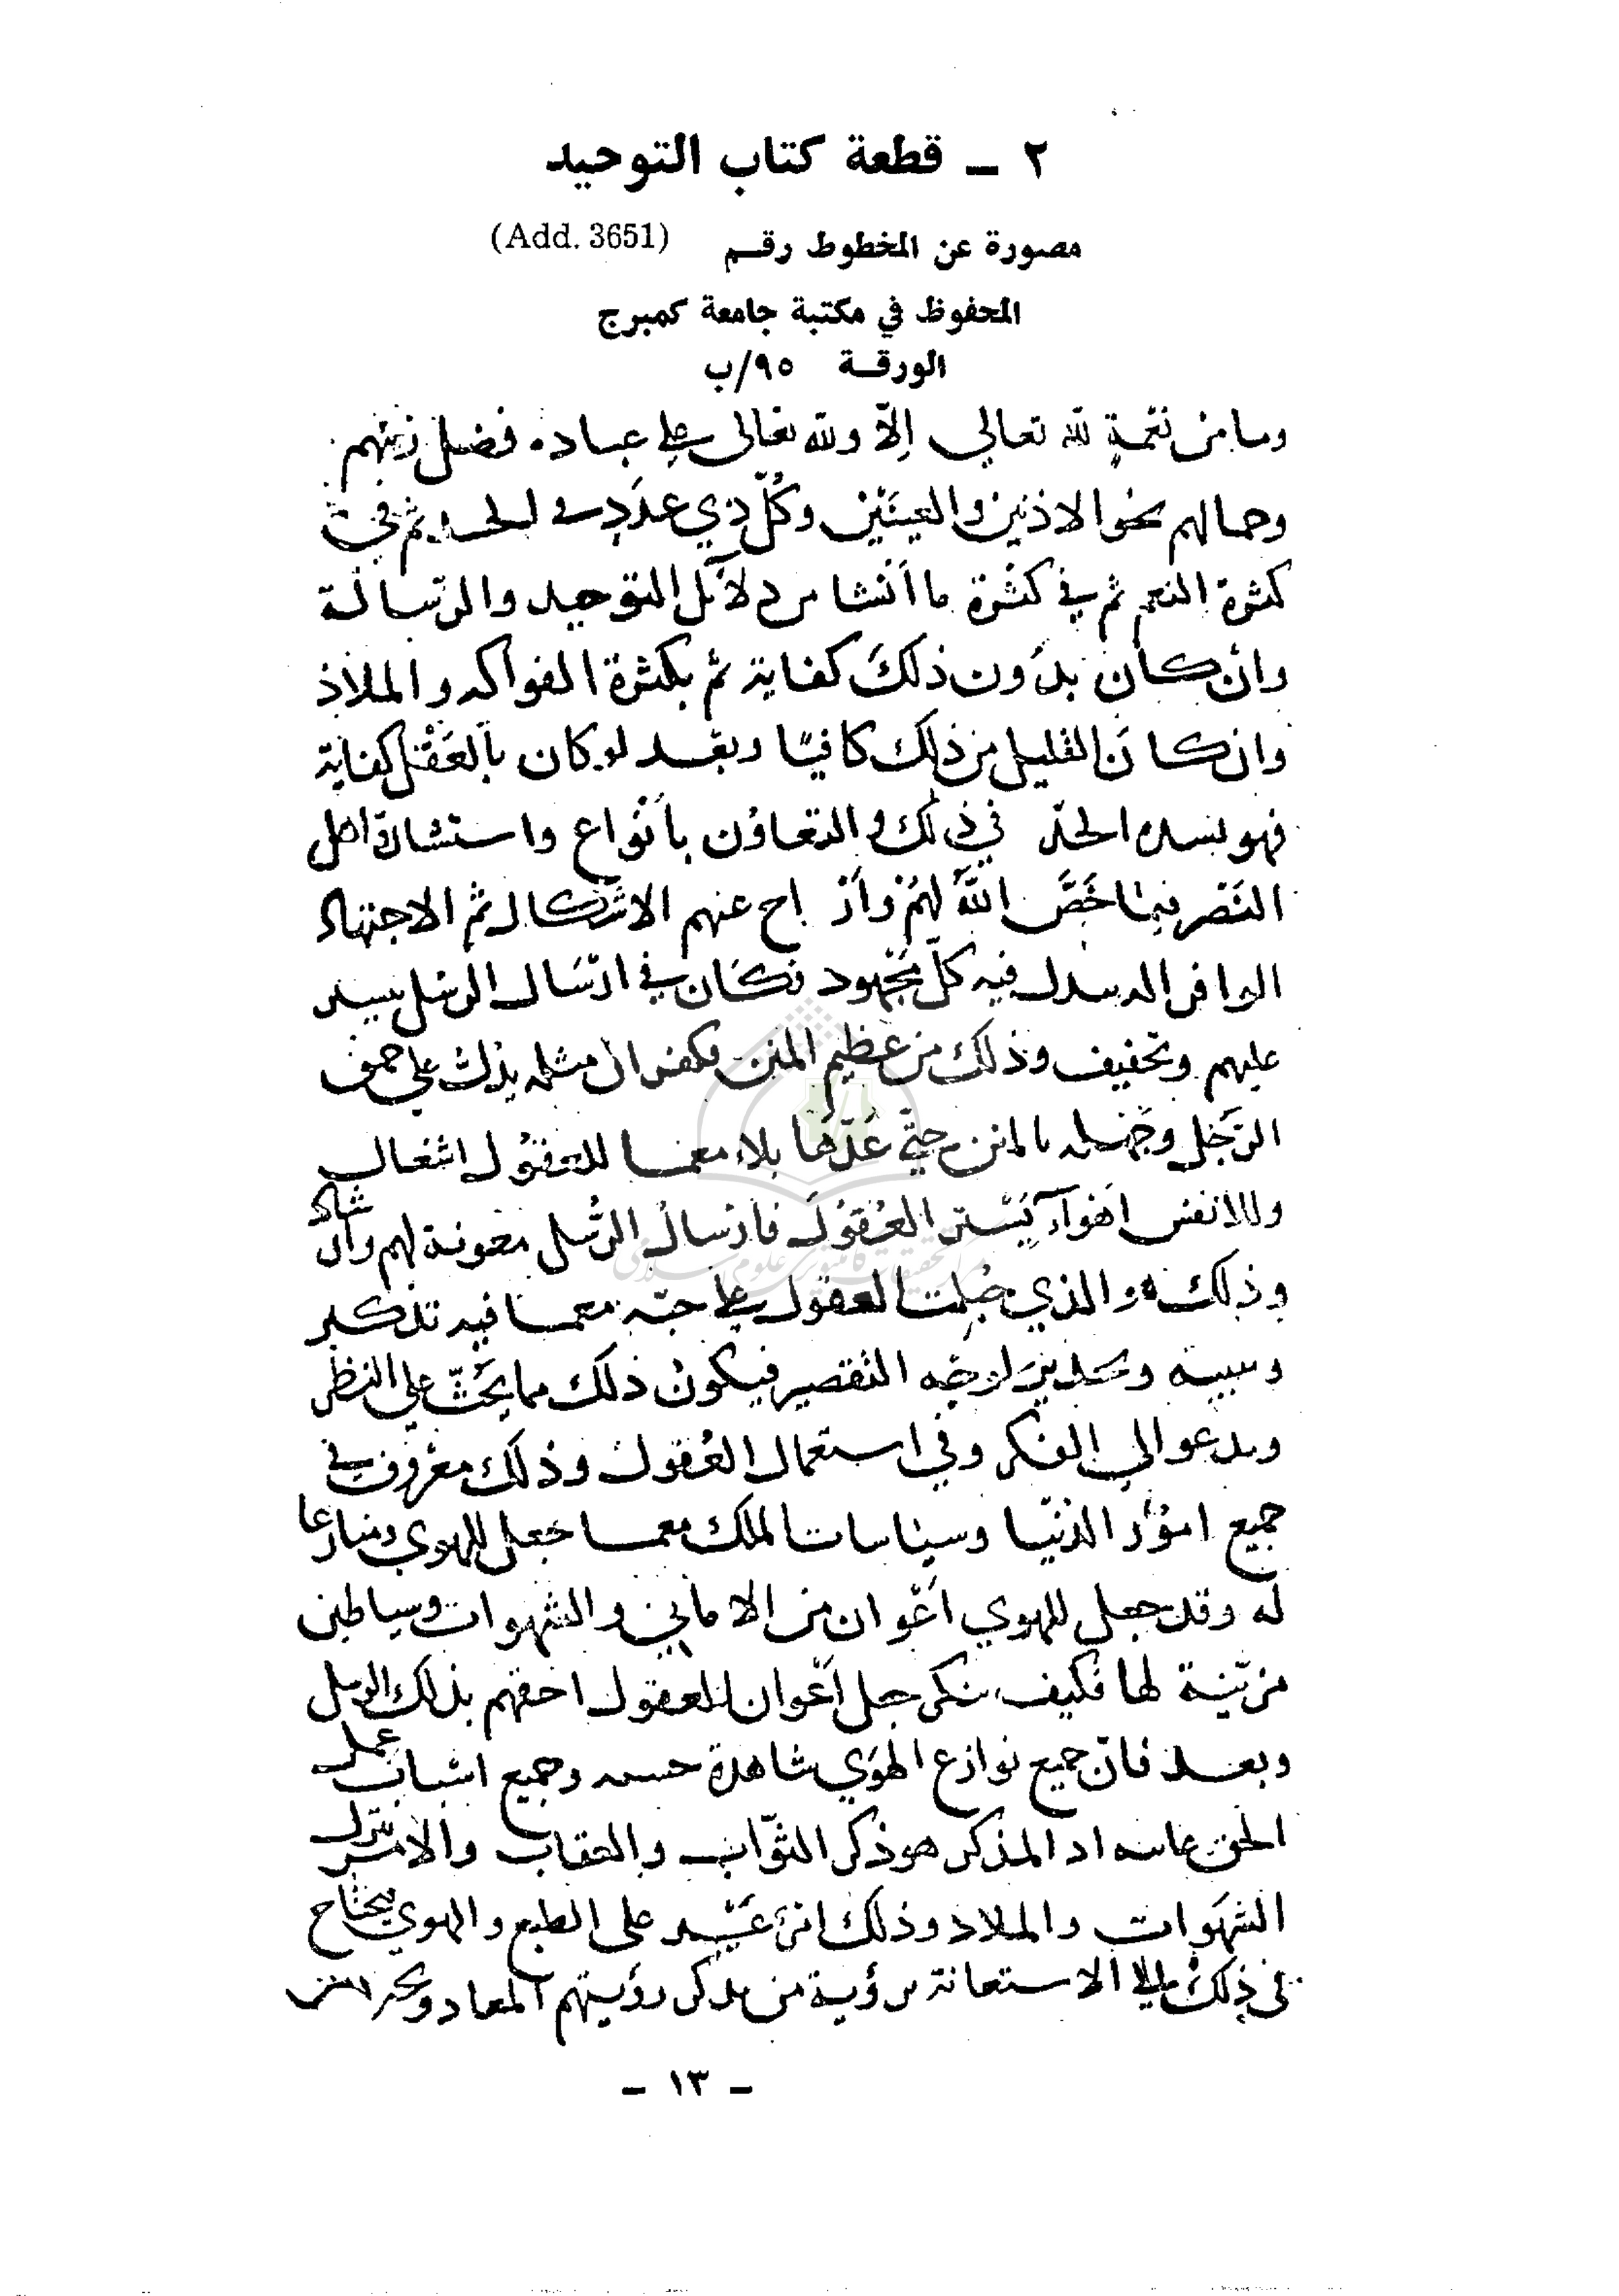 ٢ ــ قطعة كتاب التوحيد
مصورة عن المخطوط رقم (Add. 3651)
المحفوظ في مكتبة جامعة كمبرج
الورقة ٩٥/ب
وما من نعمةٍ لله تعالي إلّا ولله تعالى علي عباده فضل زينهم
وجمالهم نحو الاذنين والعينَين وكُلّ ذي عدَدٍ في الجسد ثم في
كثرة النعم ثم في كثرة ما أنشا من دلائل التوحيد والرسالة
وان كان بدون ذلكَ كفاية ثم بكثرة الفواكه والملاذ
وان كانَ القليل من ذلك كافيًا وبعد لو كان بالعَقْل كفاية
فهو بسده الحدّ في ذلك والتعاوُن بأنواع واستشارة اهل
النصر فيما خَصَّ اللهُ لهُمْ وأزاح عنهم الاشكال ثم الاجتهاد
الوافر فيه كلّ مجهود فكان في ارسال الرسل
عليهم وتخفيف وذلك من عظيم المنن فكفران مثله يدل علي حمق
الرَجُل وجَهله بالمنن حتّي عَدّهَا بلاء معما للعقول اشغال
وللانفس اهوآء يَستر العُقولَ فارسال الرُسُل معونة لهم وارشاد
وذلك والذي جُبلت العقول علي حبّه معما فيه تذكير
وتنبيه لوجه التقصير فيكون ذلك مما يَحُثّ علي النظر
ويدعو الي الفكر وفي استعمال العُقول وذلك معروف في
جميع امُوُر الدنيا وسياسات الملك معما جعل للهوي ومنازعا
له وقد جعل للهوي اعْوان من الاماني والشهوات وشياطين
مزيّنية لها فكيف ينكر جعل أعْوان للعقول احقهم بذلك الرسل
وبعد فانّ جميع نوازع الهَوَي شاهدة وجميع اسْباب عمل
الحق غاىبه اذ المذكر هو ذكر الثوّاب والعقاب والامر بترك
الشهَوات والملاذ وذلك امر عَسير على الطبع والهوي يحتاج
في ذلك إلي الاستعانة برؤية من يذكر رؤيتهم المعاد
ــ ١٣ ــ